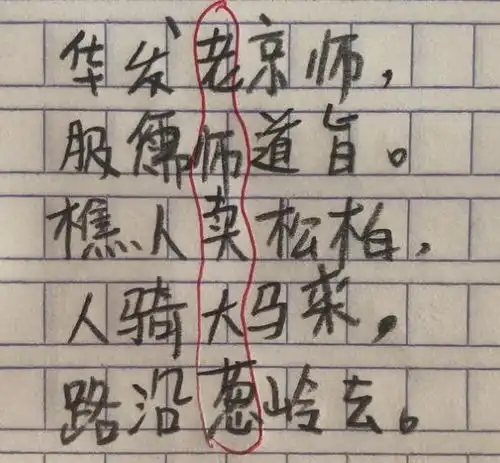 华发老京师，
服儒师道旨。
樵人卖松柏，
人骑大马来，
路沿葱岭去。